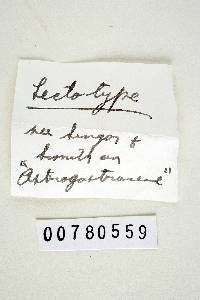 Lectotype
see Singer &
Smith on
"Astrogastraceae"
00780559